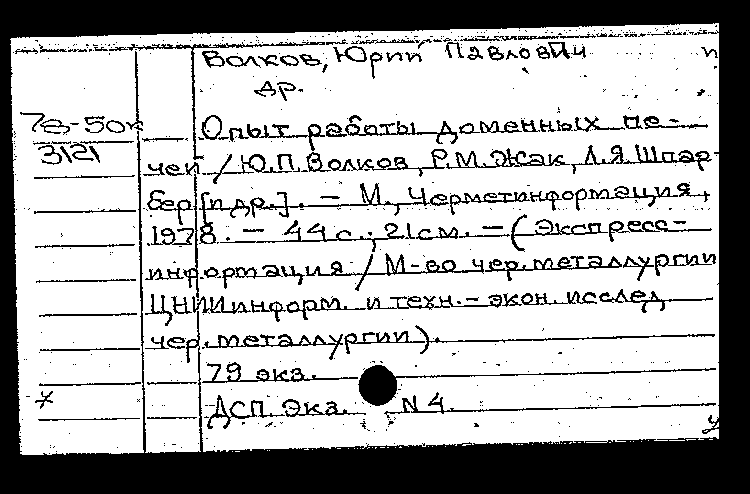 Волков, Юрий Павлович и
др.
78-50к
3121
Опыт работы доменных пе-
чей / Ю.П. Волков, Р.М. Жак, Л.Я. Шпар-
бер [и др.]. - М., Черметинформация,
1978. - 44 с.; 21 см. - (Экспресс-
информация / М-во чер. металлургии
ЦНИИинформ. и техн.-экон. исслед.
чер. металлургии).
79 экз.
ДСП. Экз. N 4.